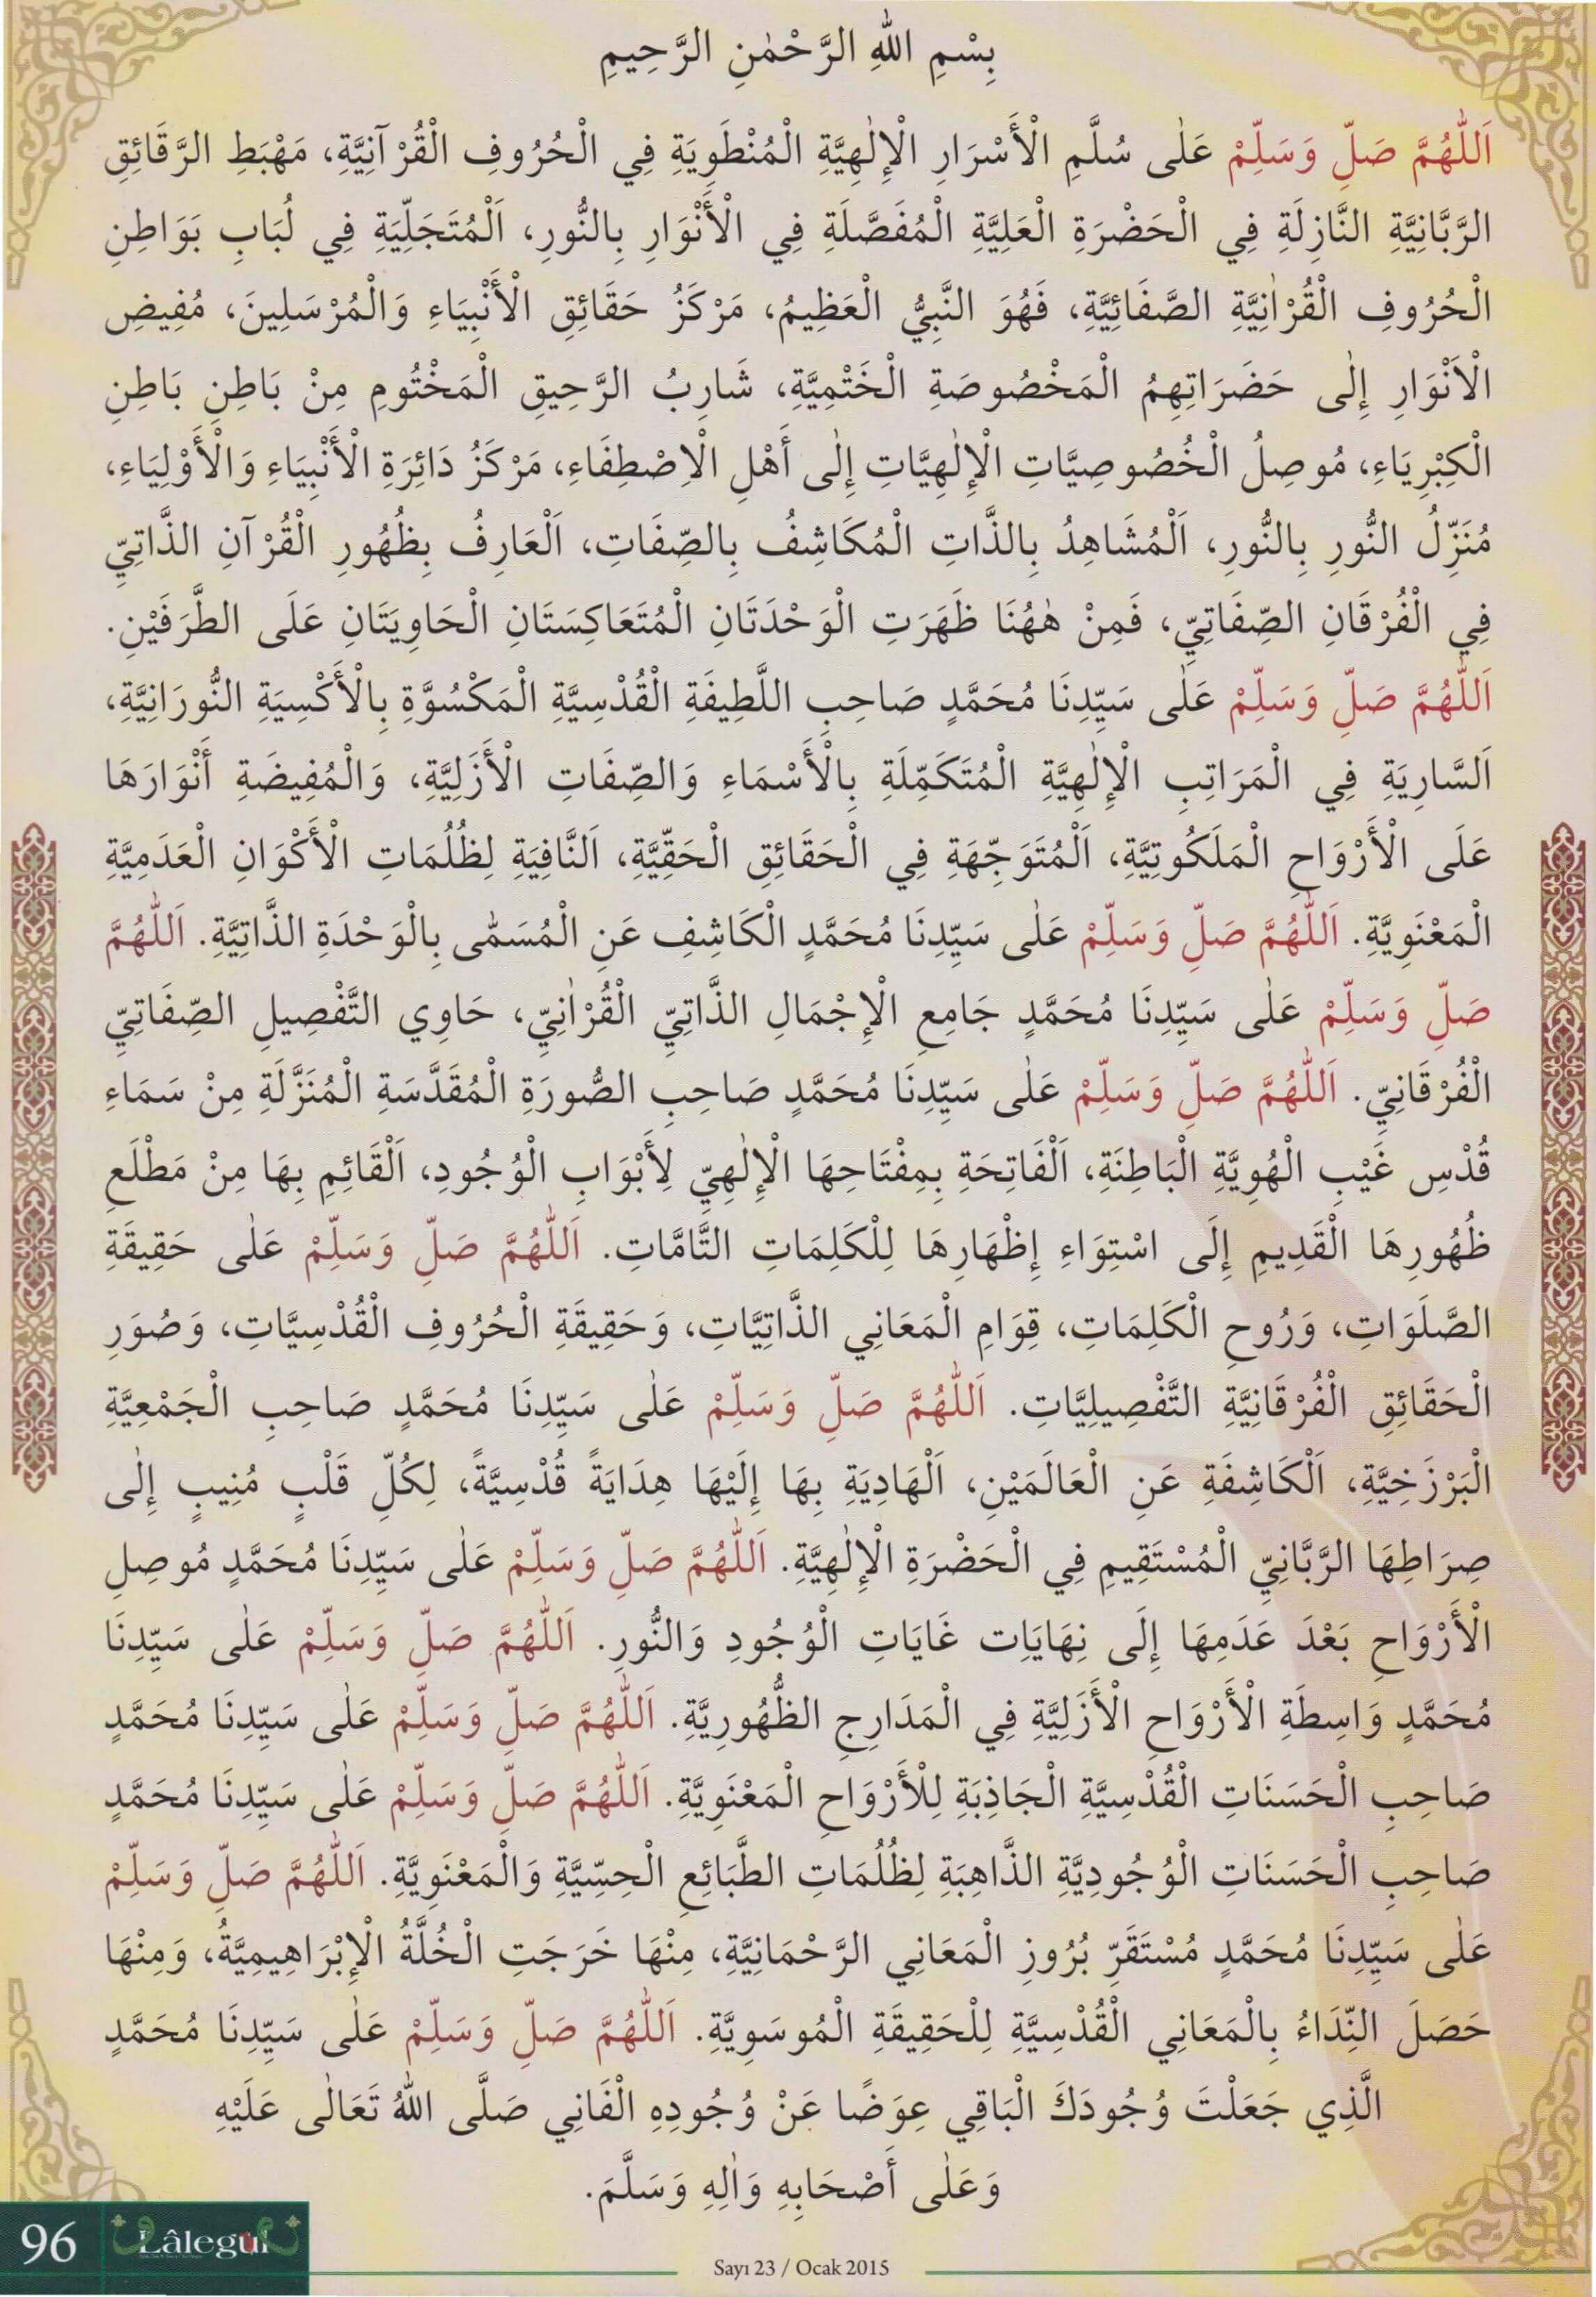 بِسْمِ اللّٰهِ الرَّحْمٰنِ الرَّحِيمِ
اَللّٰهُمَّ صَلِّ وَسَلِّمْ عَلٰى سُلَّمِ الْأَسْرَارِ الْإِلٰهِيَّةِ الْمُنْطَوِيَةِ فِي الْحُرُوفِ الْقُرْآنِيَّةِ، مَهْبَطِ الرَّقَائِقِ
الرَّبَّانِيَّةِ النَّازِلَةِ فِي الْحَضْرَةِ الْعَلِيَّةِ الْمُفَصَّلَةِ فِي الْأَنْوَارِ بِالنُّورِ، اَلْمُتَجَلِّيَةِ فِي لُبَابِ بَوَاطِنِ
الْحُرُوفِ الْقُرْاٰنِيَّةِ الصَّفَائِيَّةِ، فَهُوَ النَّبِيُّ الْعَظِيمُ، مَرْكَزُ حَقَائِقِ الْأَنْبِيَاءِ وَالْمُرْسَلِينَ، مُفِيضِ
الْاَنْوَارِ إِلٰى حَضَرَاتِهِمُ الْمَخْصُوصَةِ الْخَتْمِيَّةِ، شَارِبُ الرَّحِيقِ الْمَخْتُومِ مِنْ بَاطِنِ بَاطِنِ
الْكِبْرِيَاءِ، مُوصِلُ الْخُصُوصِيَّاتِ الْإِلٰهِيَّاتِ إِلٰى أَهْلِ الْاِصْطِفَاءِ، مَرْكَزُ دَائِرَةِ الْأَنْبِيَاءِ وَالْأَوْلِيَاءِ،
مُنَزِّلُ النُّورِ بِالنُّورِ، اَلْمُشَاهِدُ بِالذَّاتِ الْمُكَاشِفُ بِالصِّفَاتِ، اَلْعَارِفُ بِظُهُورِ الْقُرْآنِ الذَّاتِيِّ
فِي الْفُرْقَانِ الصِّفَاتِيِّ، فَمِنْ هٰهُنَا ظَهَرَتِ الْوَحْدَتَانِ الْمُتَعَاكِسَتَانِ الْحَاوِيَتَانِ عَلَى الطَّرَفَيْنِ.
اَللّٰهُمَّ صَلِّ وَسَلِّمْ عَلٰى سَيِّدِنَا مُحَمَّدٍ صَاحِبِ اللَّطِيفَةِ الْقُدْسِيَّةِ الْمَكْسُوَّةِ بِالْأَكْسِيَةِ النُّورَانِيَّةِ،
اَلسَّارِيَةِ فِي الْمَرَاتِبِ الْإِلٰهِيَّةِ الْمُتَكَمِّلَةِ بِالْأَسْمَاءِ وَالصِّفَاتِ الْأَزَلِيَّةِ، وَالْمُفِيضَةِ أَنْوَارَهَا
عَلَى الْأَرْوَاحِ الْمَلَكُوتِيَّةِ، اَلْمُتَوَجِّهَةِ فِي الْحَقَائِقِ الْحَقِّيَّةِ، اَلنَّافِيَةِ لِظُلُمَاتِ الْأَكْوَانِ الْعَدَمِيَّةِ
الْمَعْنَوِيَّةِ. اَللّٰهُمَّ صَلِّ وَسَلِّمْ عَلٰى سَيِّدِنَا مُحَمَّدٍ الْكَاشِفِ عَنِ الْمُسَمّٰى بِالْوَحْدَةِ الذَّاتِيَّةِ. اَللّٰهُمَّ
صَلِّ وَسَلِّمْ عَلٰى سَيِّدِنَا مُحَمَّدٍ جَامِعِ الْإِجْمَالِ الذَّاتِيِّ الْقُرْاٰنِيِّ، حَاوِي التَّفْصِيلِ الصِّفَاتِيِّ
الْفُرْقَانِيِّ. اَللّٰهُمَّ صَلِّ وَسَلِّمْ عَلٰى سَيِّدِنَا مُحَمَّدٍ صَاحِبِ الصُّورَةِ الْمُقَدَّسَةِ الْمُنَزَّلَةِ مِنْ سَمَاءِ
قُدْسِ غَيْبِ الْهُوِيَّةِ الْبَاطِنَةِ، اَلْفَاتِحَةِ بِمِفْتَاحِهَا الْإِلٰهِيِّ لِأَبْوَابِ الْوُجُودِ، اَلْقَائِمِ بِهَا مِنْ مَطْلَعِ
ظُهُورِهَا الْقَدِيمِ إِلَى اسْتِوَاءِ إِظْهَارِهَا لِلْكَلِمَاتِ التَّامَّاتِ. اَللّٰهُمَّ صَلِّ وَسَلِّمْ عَلٰى حَقِيقَةِ
الصَّلَوَاتِ، وَرُوحِ الْكَلِمَاتِ، قِوَامِ الْمَعَانِي الذَّاتِيَّاتِ، وَحَقِيقَةِ الْحُرُوفِ الْقُدْسِيَّاتِ، وَصُوَرِ
الْحَقَائِقِ الْفُرْقَانِيَّةِ التَّفْصِيلِيَّاتِ. اَللّٰهُمَّ صَلِّ وَسَلِّمْ عَلٰى سَيِّدِنَا مُحَمَّدٍ صَاحِبِ الْجَمْعِيَّةِ
الْبَرْزَخِيَّةِ، اَلْكَاشِفَةِ عَنِ الْعَالَمَيْنِ، اَلْهَادِيَةِ بِهَا إِلَيْهَا هِدَايَةً قُدْسِيَّةً، لِكُلِّ قَلْبٍ مُنِيبٍ إِلٰى
صِرَاطِهَا الرَّبَّانِيِّ الْمُسْتَقِيمِ فِي الْحَضْرَةِ الْإِلٰهِيَّةِ. اَللّٰهُمَّ صَلِّ وَسَلِّمْ عَلٰى سَيِّدِنَا مُحَمَّدٍ مُوصِلِ
الْأَرْوَاحِ بَعْدَ عَدَمِهَا إِلَى نِهَايَاتِ غَايَاتِ الْوُجُودِ وَالنُّورِ. اَللّٰهُمَّ صَلِّ وَسَلِّمْ عَلٰى سَيِّدِنَا
مُحَمَّدٍ وَاسِطَةِ الْأَرْوَاحِ الْأَزَلِيَّةِ فِي الْمَدَارِجِ الظُّهُورِيَّةِ. اَللّٰهُمَّ صَلِّ وَسَلِّمْ عَلٰى سَيِّدِنَا مُحَمَّدٍ
صَاحِبِ الْحَسَنَاتِ الْقُدْسِيَّةِ الْجَاذِبَةِ لِلْأَرْوَاحِ الْمَعْنَوِيَّةِ. اَللّٰهُمَّ صَلِّ وَسَلِّمْ عَلٰى سَيِّدِنَا مُحَمَّدٍ
صَاحِبِ الْحَسَنَاتِ الْوُجُودِيَّةِ الذَّاهِبَةِ لِظُلُمَاتِ الطَّبَائِعِ الْحِسِّيَّةِ وَالْمَعْنَوِيَّةِ. اَللّٰهُمَّ صَلِّ وَسَلِّمْ
عَلٰى سَيِّدِنَا مُحَمَّدٍ مُسْتَقَرِّ بُرُوزِ الْمَعَانِي الرَّحْمَانِيَّةِ، مِنْهَا خَرَجَتِ الْخُلَّةُ الْإِبْرَاهِيمِيَّةُ، وَمِنْهَا
حَصَلَ النِّدَاءُ بِالْمَعَانِي الْقُدْسِيَّةِ لِلْحَقِيقَةِ الْمُوسَوِيَّةِ. اَللّٰهُمَّ صَلِّ وَسَلِّمْ عَلٰى سَيِّدِنَا مُحَمَّدٍ
الَّذِي جَعَلْتَ وُجُودَكَ الْبَاقِي عِوَضًا عَنْ وُجُودِهِ الْفَانِي صَلَّى اللّٰهُ تَعَالٰى عَلَيْهِ
وَعَلٰى أَصْحَابِهِ وَاٰلِهِ وَسَلَّمَ.
96 Lâlegül
Sayı 23 / Ocak 2015